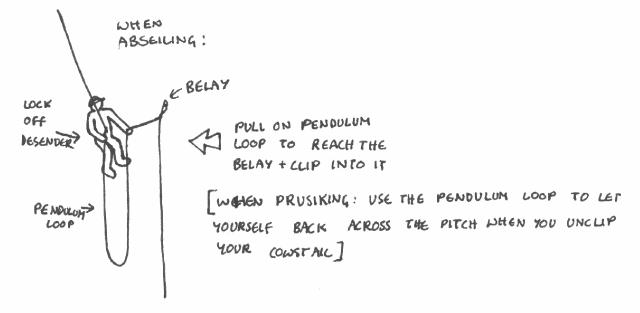 WHEN
ABSEILING:
BELAY
LOCK
OFF
DESENDER
PULL ON PENDULUM
LOOP TO REACH THE
BELAY + CLIP INTO IT
PENDULUM
LOOP
[WHEN PRUSIKING: USE THE PENDULUM LOOP TO LET
YOURSELF BACK ACROSS THE PITCH WHEN YOU UNCLIP
YOUR COWSTAIL]